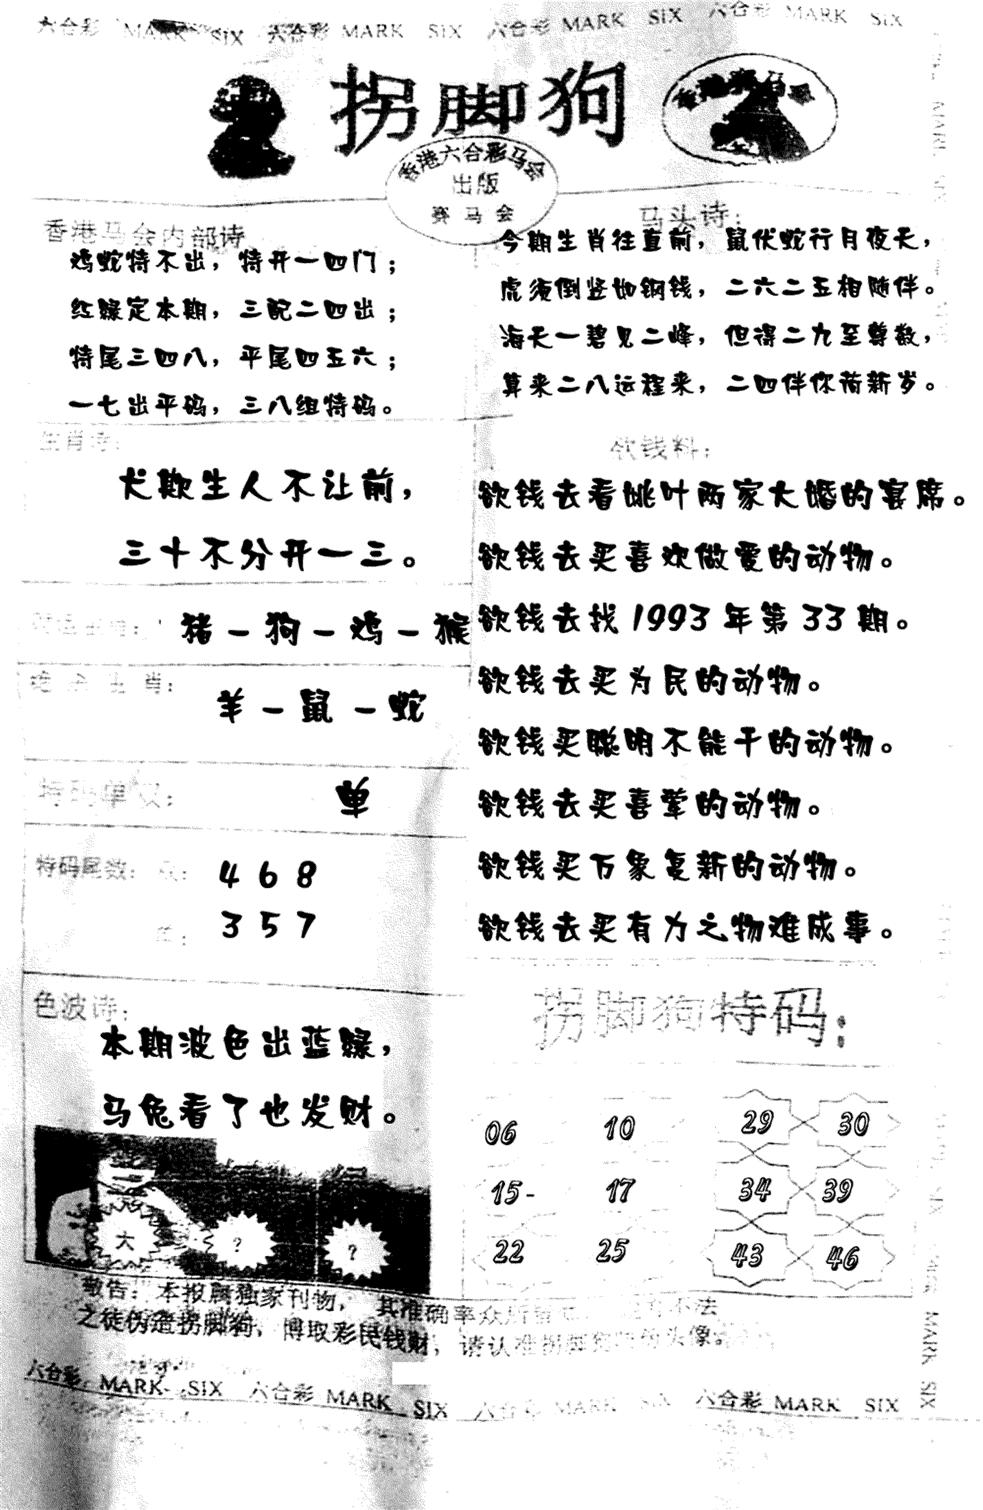 六合彩 MARK SIX 六合彩 MARK SIX 六合彩 MARK SIX 六合彩 MARK SIX
拐脚狗
香港赛马会
香港六合彩马会
出版
赛马会
香港马会内部诗
鸡蛇特不出，特开一四门；
红绿定本期，三配二四出；
特尾三四八，平尾四五六；
一七出平码，三八组特码。
马头诗：
今期生肖往直前，鼠伏蛇行月夜天，
虎须倒竖如钢钱，二六二五相随伴。
海天一碧见二峰，但得二九至尊数，
算来二八运程来，二四伴你荷新岁。
生肖诗：
犬欺生人不让前，
三十不分开一三。
猪－狗－鸡－猴
绝杀生肖：
羊－鼠－蛇
特码单双：
单
特码尾数：双：
4 6 8
单：
3 5 7
色波诗：
本期波色出蓝绿，
马兔看了也发财。
大
?
?
欲钱料：
欲钱去看姚叶两家大婚的宴席。
欲钱去买喜欢做爱的动物。
欲钱去找1993年第33期。
欲钱去买为民的动物。
欲钱买聪明不能干的动物。
欲钱去买喜荤的动物。
欲钱买万象复新的动物。
欲钱去买有力之物难成事。
拐脚狗特码：
06 10 29 30
15- 17 34 39
22 25 43 46
敬告：本报属独家刊物，其准确率众所 不法
之徒伪造拐脚狗，博取彩民钱财，请认准拐脚狗 头像。
六合彩 MARK SIX 六合彩 MARK SIX 六合彩 MARK SIX 六合彩 MARK SIX
MARK SIX
MARK SIX